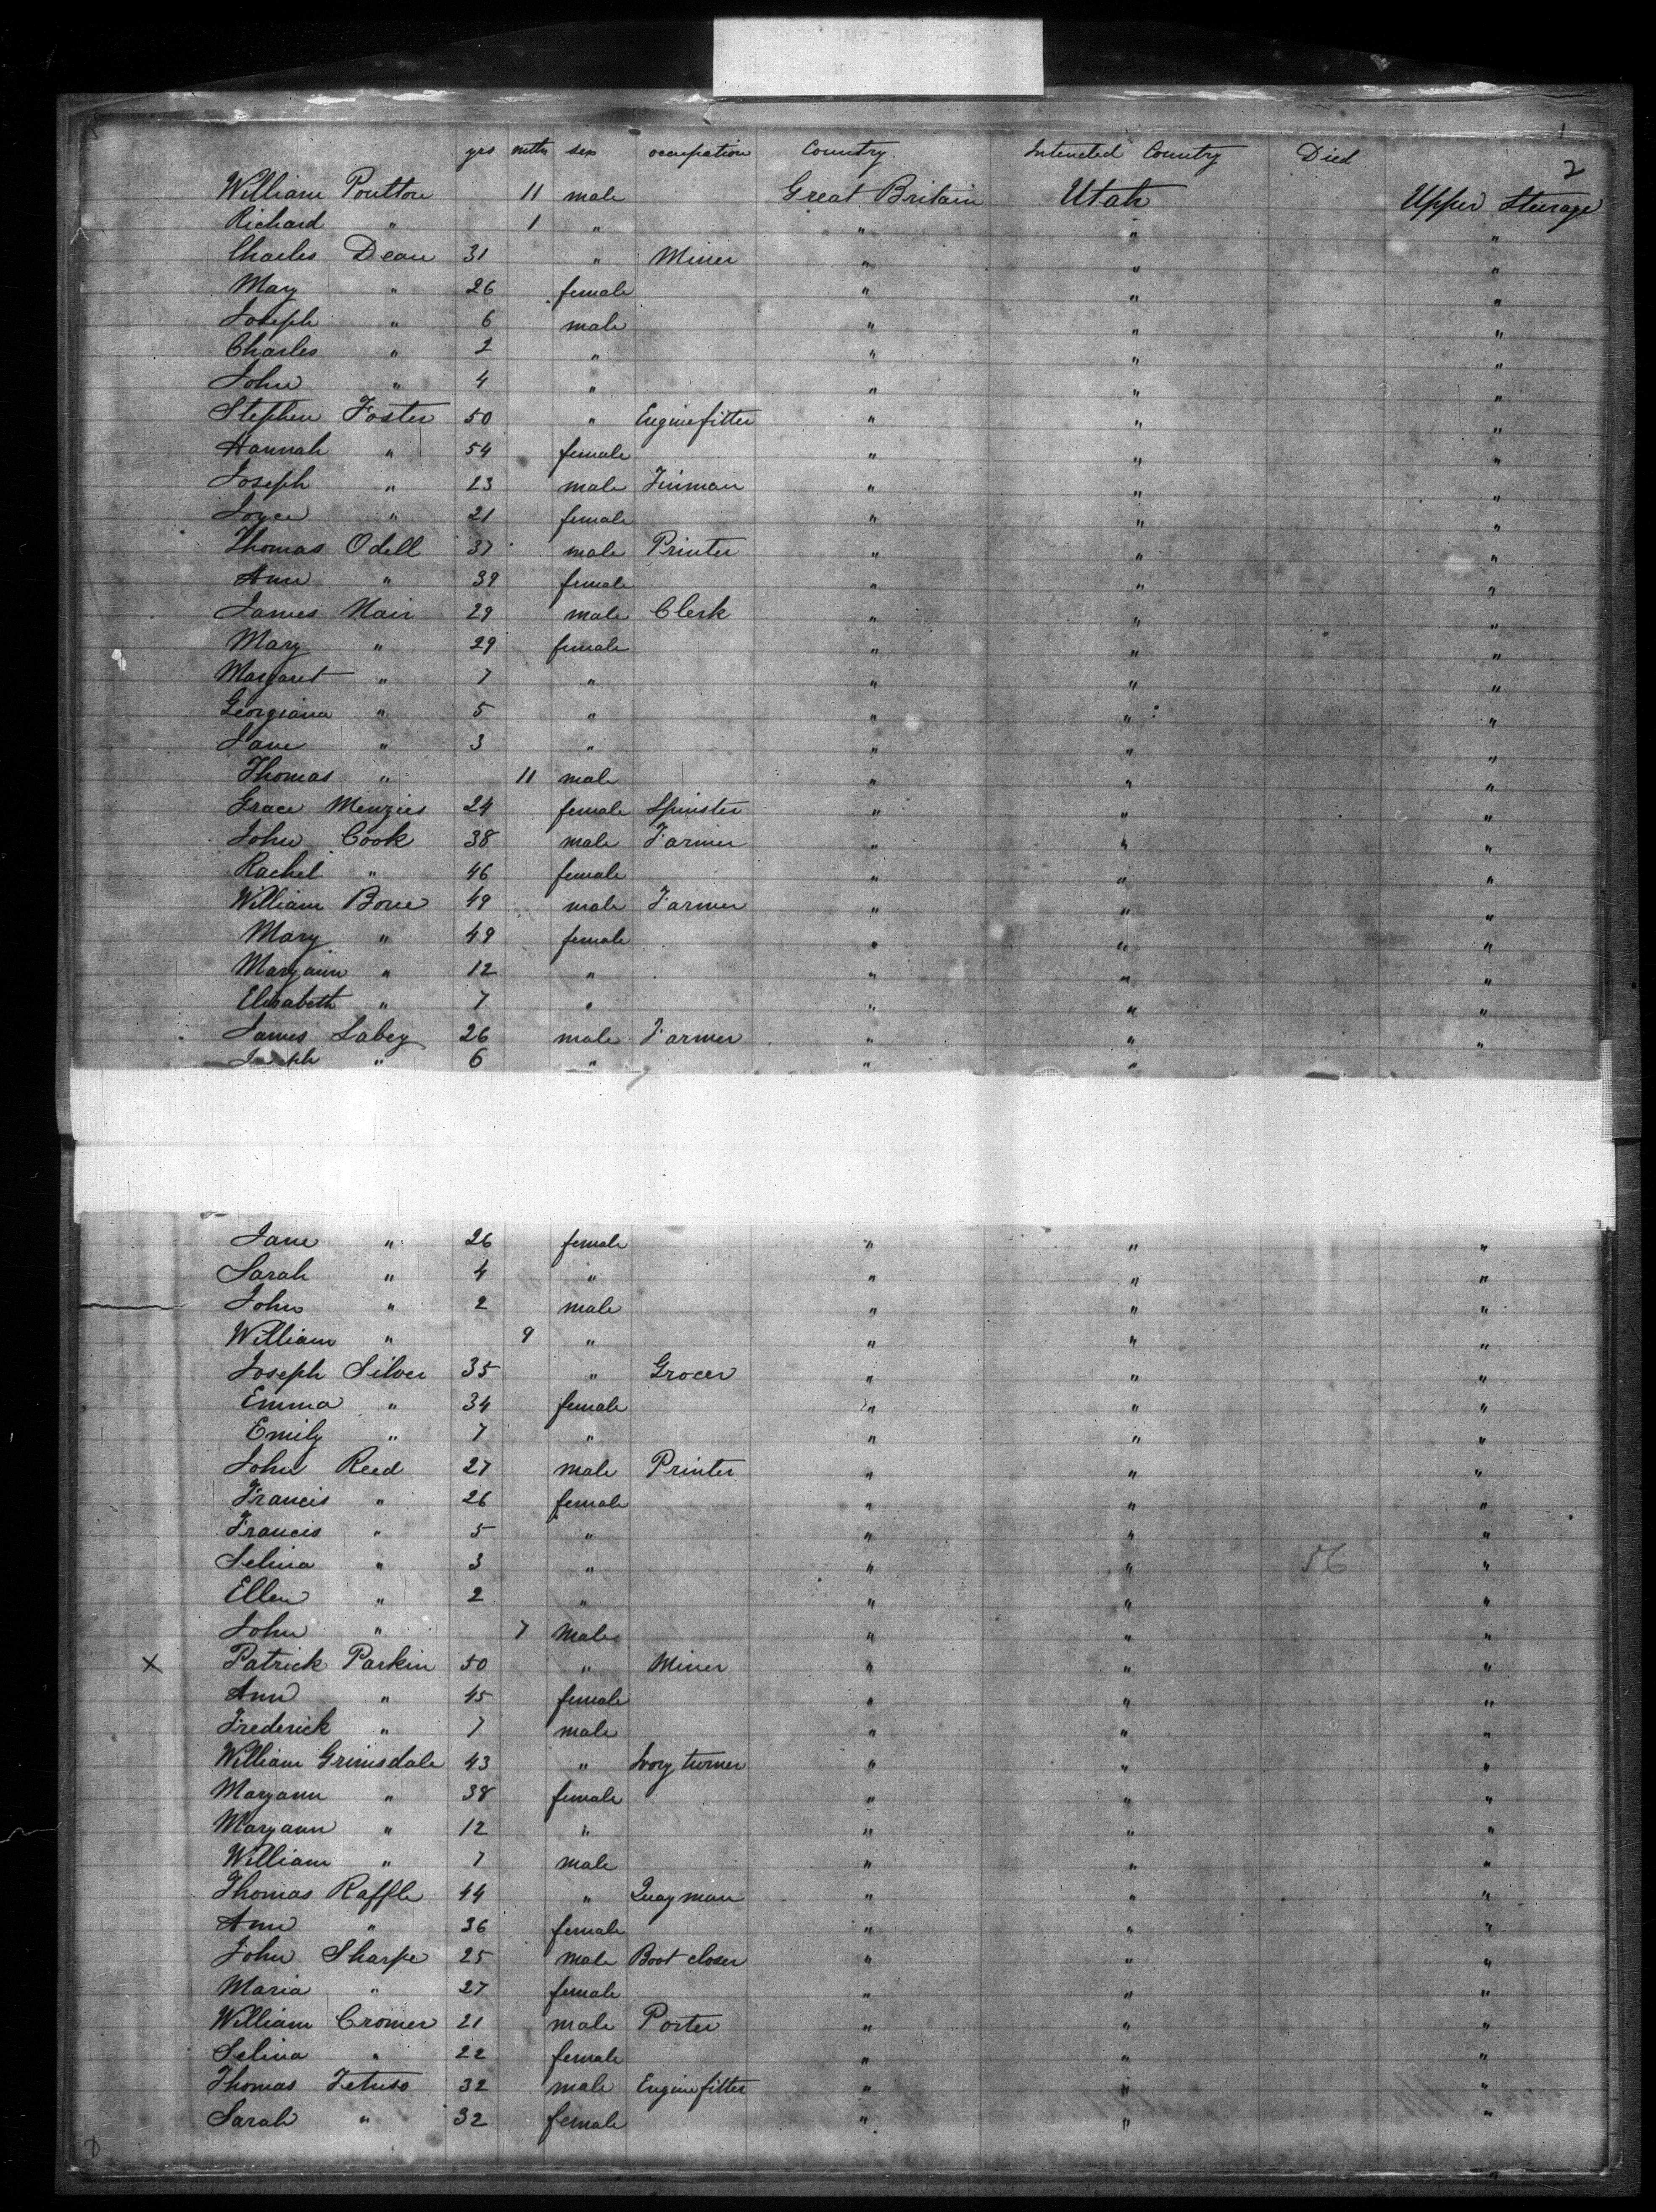 1
yrs mths sex occupation Country. Intended Country Died
2
William Poulton 11 male Great Britain Utah Upper Steerage
Richard " 1 " " " "
Charles Dean 31 " Miner " " "
Mary " 26 female " " "
Joseph " 6 male " " "
Charles " 2 " " " "
John " 4 " " " "
Stephen Foster 50 " Enginefitter " " "
Hannah " 54 female " " "
Joseph " 23 male Tinman " " "
Joyce " 21 female " " "
Thomas Odell 37 male Printer " " "
Ann " 39 female " " "
James Nair 29 male Clerk " " "
Mary " 29 female " " "
Margaret " 7 " " " "
Georgiana " 5 " " " "
Jane " 3 " " " "
Thomas " 11 male " " "
Grace Menzies 24 female Spinster " " "
John Cook 38 male Farmer " " "
Rachel " 46 female " " "
William Bone 49 male Farmer " " "
Mary " 49 female " " "
Maryann " 12 " " " "
Elisabeth " 7 " " " "
James Sabey 26 male Farmer " " "
Joseph " 6 " " "
Jane " 26 female " " "
Sarah " 4 " " " "
John " 2 male " " "
William " 9 " " " "
Joseph Silver 35 " Grocer " " "
Emma " 34 female " " "
Emily " 7 " " " "
John Reed 27 male Printer " " "
Francis " 26 female " " "
Francis " 5 " " " "
Selina " 3 " " " 56 "
Ellen " 2 " " " "
John " 7 Male " " "
x Patrick Parkin 50 " Miner " " "
Ann " 45 female " " "
Frederick " 7 male " " "
William Grimsdale 43 " Ivory turner " " "
Maryann " 38 female " " "
Maryann " 12 " " " "
William " 7 male " " "
Thomas Raffle 44 " Quayman " " "
Ann " 36 female " " "
John Sharpe 25 male Boot closer " " "
Maria " 27 female " " "
William Cromer 21 male Porter " " "
Selina " 22 female " " "
Thomas 32 male Enginefitter " " "
Sarah " 32 female " " "